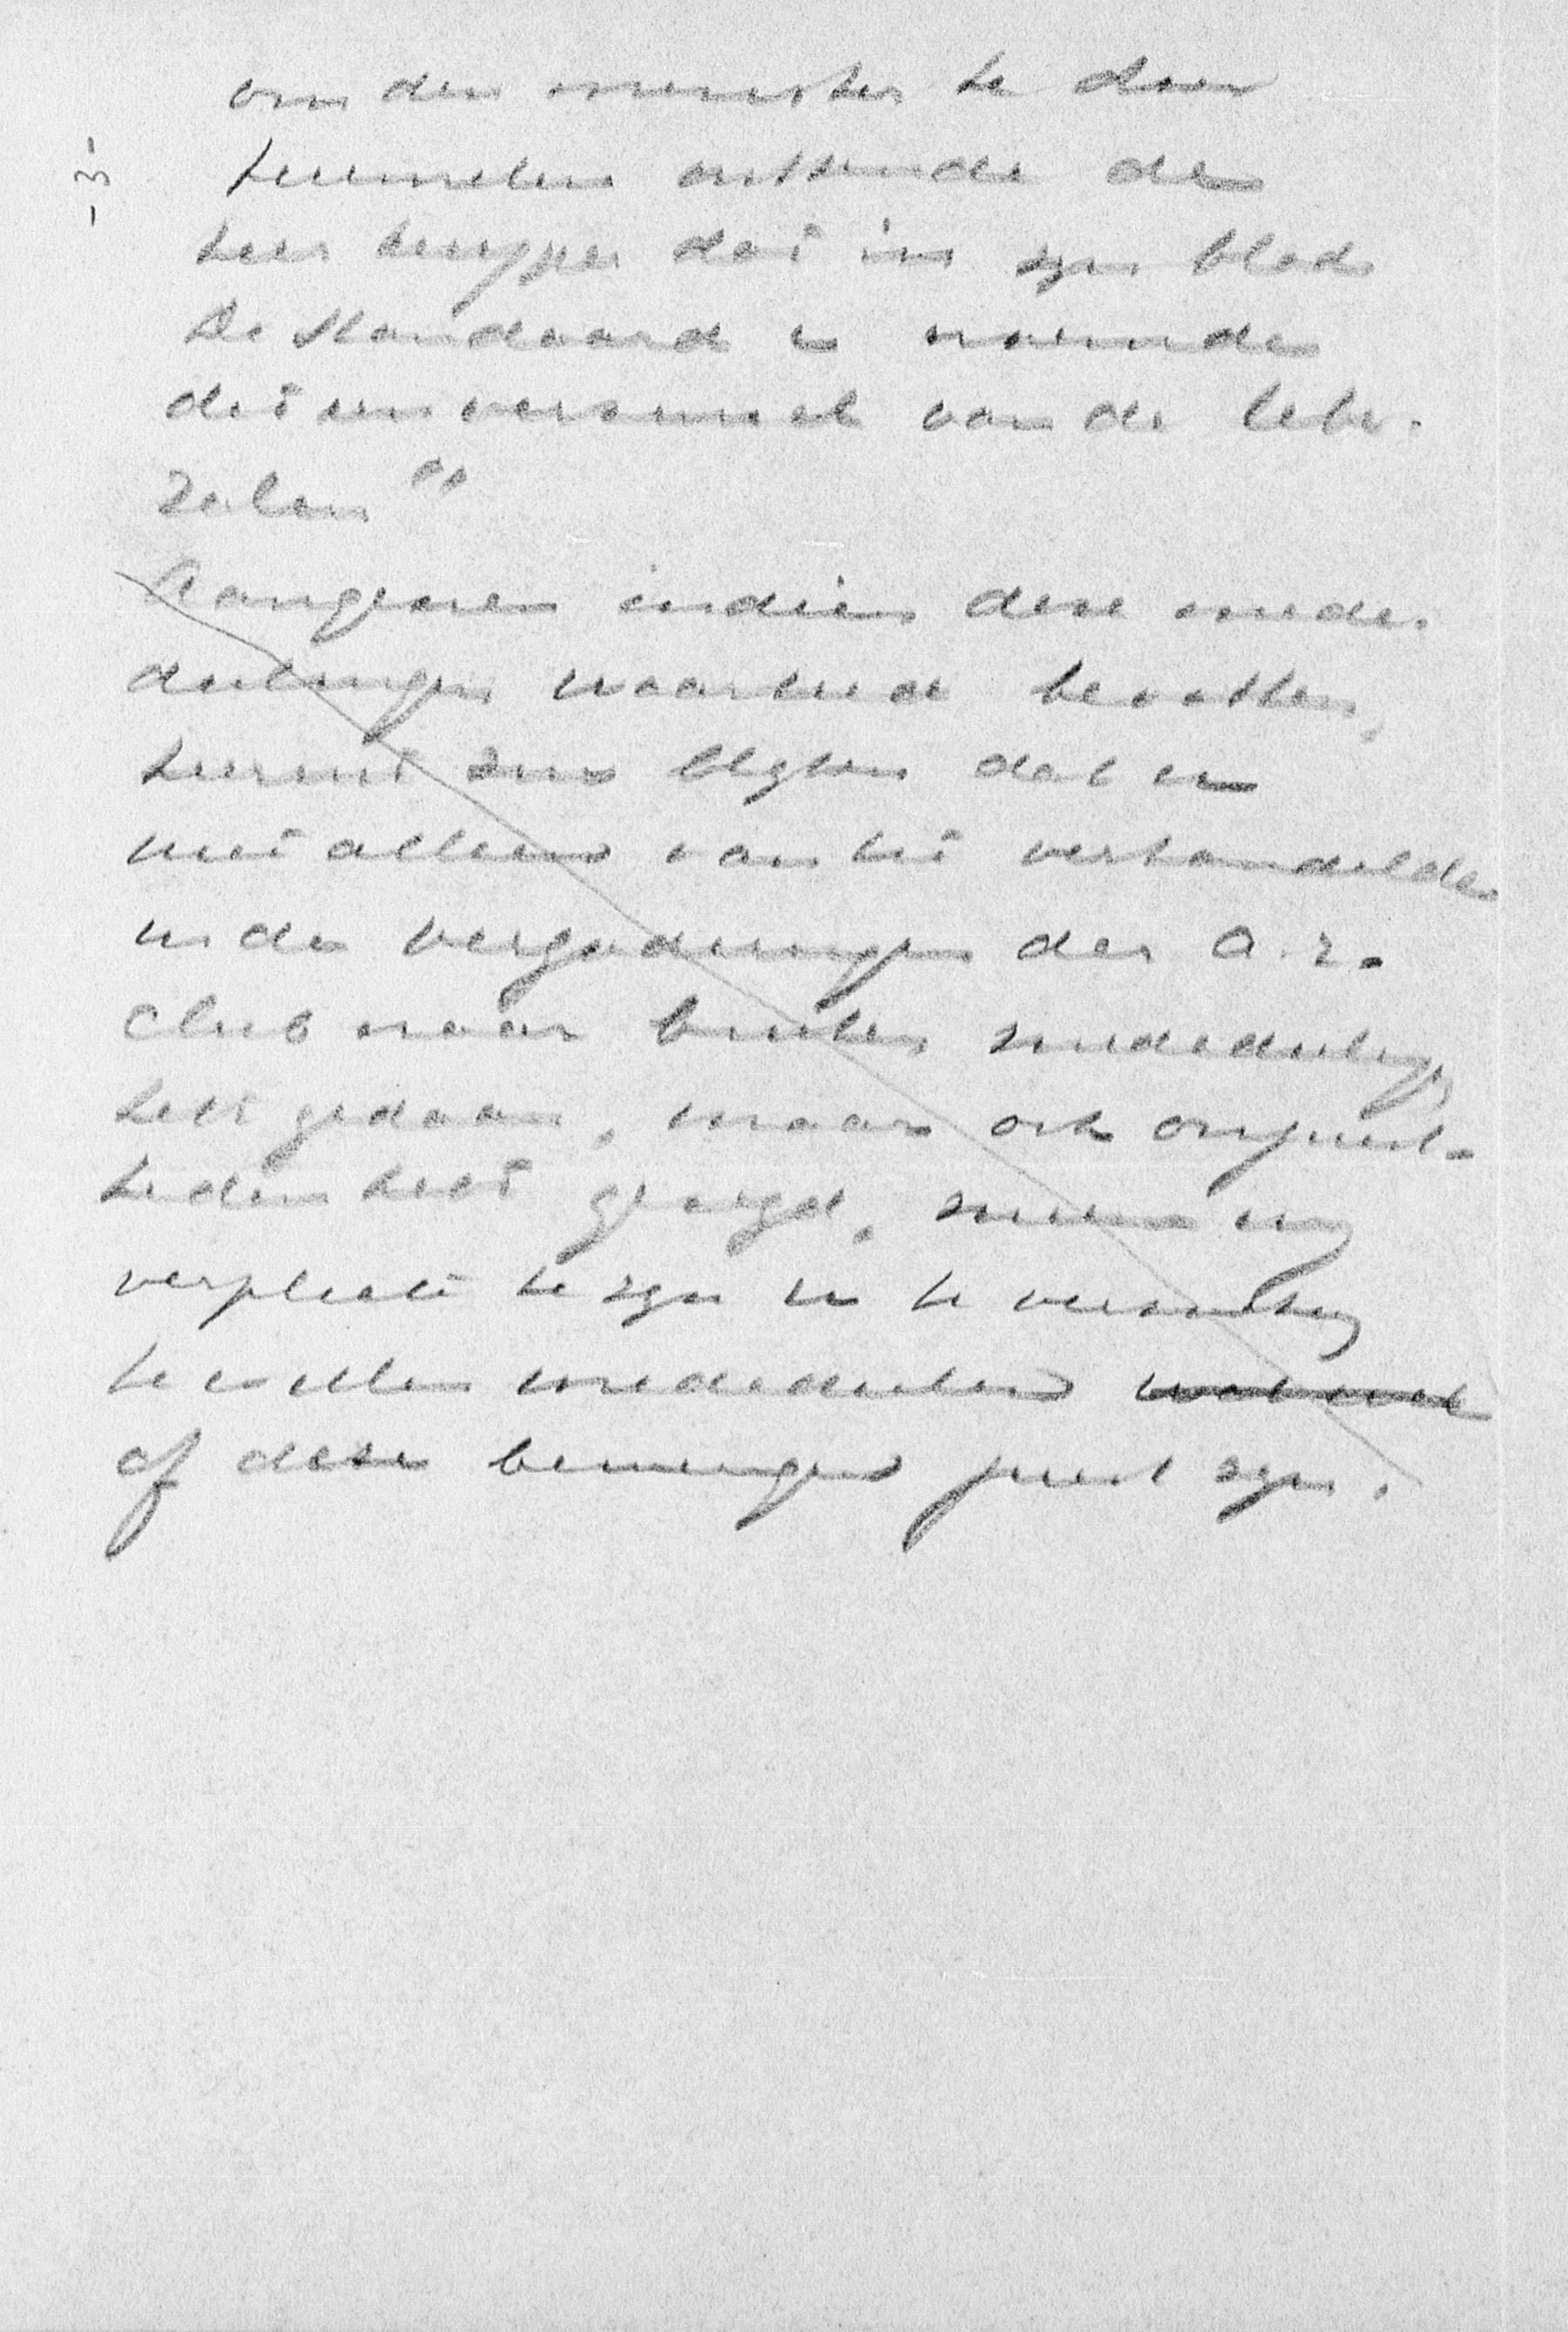 - 3 -
om den minister te doen
tuimelen ontkende de
heer Kuyper dat in zyn blad
De Standaard en noemde
dit een verzinsel van de libe-
ralen"
Aangezien indien deze mede-
deelingen waarheid bevatten,
hieruit zou blyken dat U
niet alleen van het verhandelde
in de vergaderingen der a.r.
club naar buiten mededeeling
hebt gedaan, maar ook onjuist-
heden hebt gezegd, meenen wy
verplicht te zyn U te verzoeken
te willen mededeelen
of deze beweringen juist zyn.